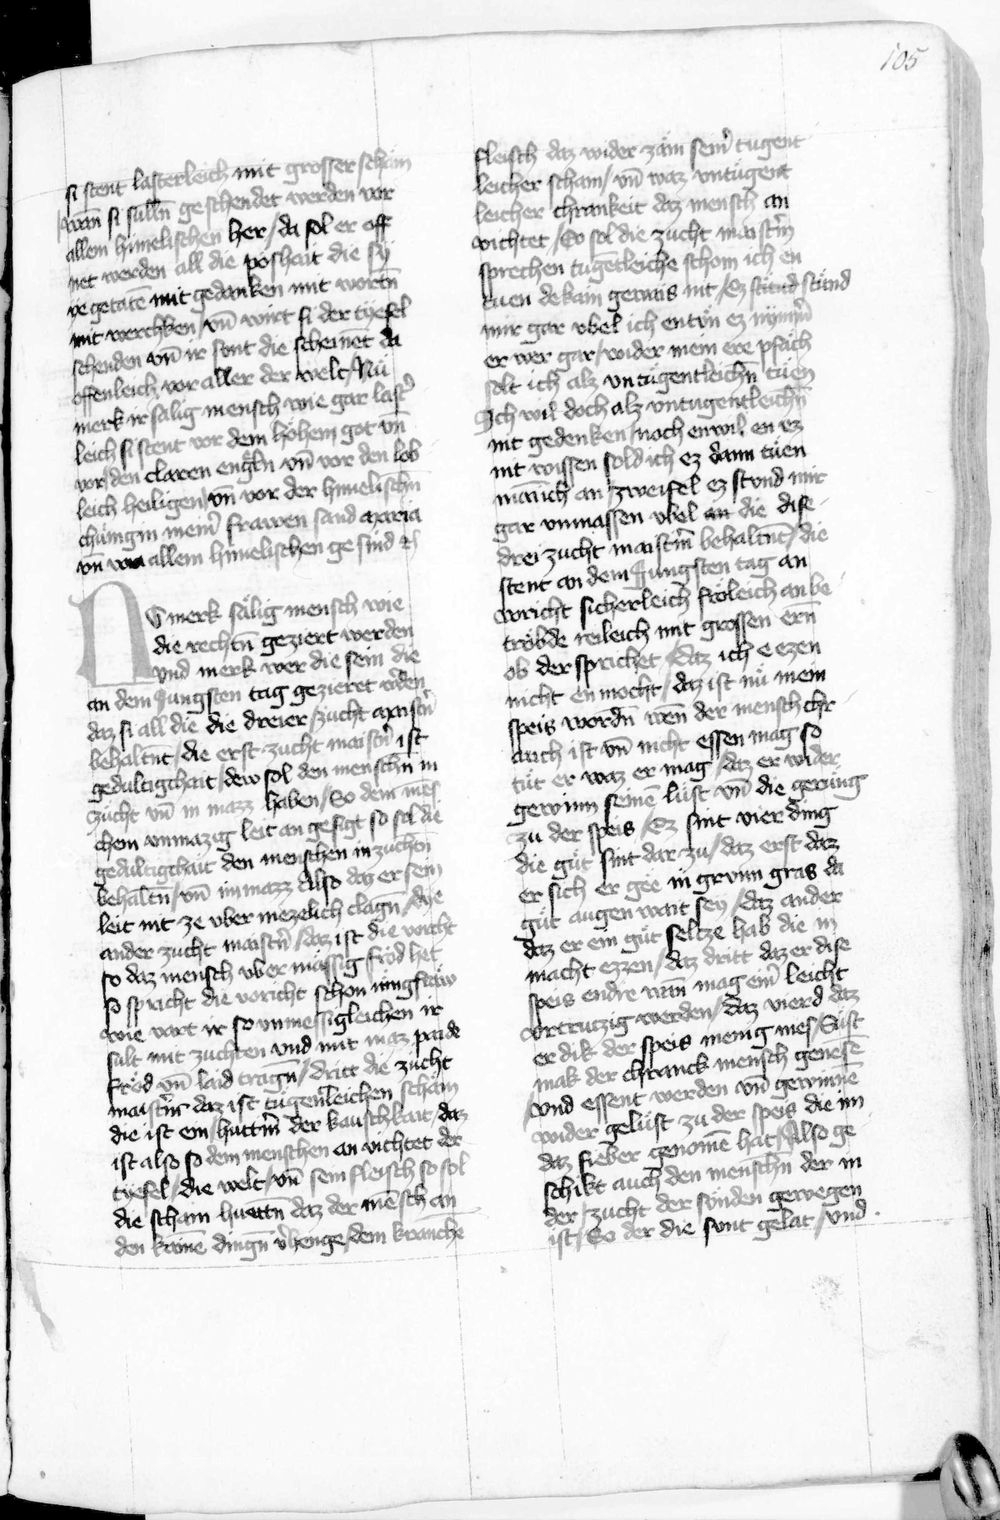 105
si stent lasterleich mit grosser scham
wan si sulln̄ geschendet werden vor
allem himelischen her / da sol er off
net werden all die poshait die sy
ye getatē mit gedanken mit wortn̄
mit werchken / vn̄ wirt si der tyefel
schenden vn̄ ir sunt die scheinēt da
offenleich vor aller der welt / Nū
merk ir sälig mensch wie gar last̉
leich si stent vor dem höhem got vn̄
vor / den claren engeln vn̄ vor den lob
leich heiligen / vn̄ vor der himelischn̄
chüngin mein̉ frawen sand maria
vn̄ von allem himelischen gesind
NV merk sälig mensch wie
die rechtn̄ geziert werden
vnd merk wer die sein die
an dem Jungsten tag gezieret w̉den
daz si all die die dreier / zucht maistrī
behaltn̄t / die erst zucht maistrī ist
gedultigchait / dew sol den menschn̄ in
zucht vn̄ in mazz haben / So dem mēs
chem vnmazig leit an gesigt so sol die
gedultigchait den menschen in zuchon
behaltn̄ / vn̄ in mazz Also daz er sein
leit nit ze vber mezelich clagn̄ / dye
ander zucht maistrī / daz ist die voricht
so daz mensch vber mässig fröd het
so spricht die voricht schon iungfraw
wie vart ir so vnmessigleichen ir
sult mit zuchten vnd mit maz paide
fröd vn̄ laid tragn̄ / dritt die zucht
maistrīn daz ist tugentleichen scham
die ist ein / huttrīn der kauschkait / daz
ist also so dem menschen an vichtet der
tyefel / die welt / vn̄ sein fleisch so sol
die scham huettn̄ daz der mēsch an
den krainē dingn̄ v̉henge / dem kranche
fleisch daz wider zäm sein̉ tugent
leicher scham / vn̄ waz vntugent
leicher chrankeit daz mensch an
vichtet / So sol die zucht maistrī
sprechen tugētleiche schom ich en
tuen dekain gewis nit / Ez stünd stünd
mir gar vbel ich entün ez nymm̄
er wer gar / wider mein ere pfäch
solt ich alz vntugentleichn̄ tüen
Ich wil doch alz vntugentleichn̄
nit gedenken / noch enwil en ez
nit wissen sold ich ez dann tüen
wān ich an / zweifel ez stund mir
gar vnmassen vbel an die dise
drei zucht maistrī behaltn̄t / die
stent an dem Jungsten tag an
voricht sicherleich fröleich an be
trübde reileich mit grossen ern̄
ob der sprichet / daz ich e ezen
nicht en mocht / daz ist nū mein
speis wordn̄ wen̄ der mensch chr
anch ist vn̄ nicht essen mag so
tüt er waz er mag / daz er wider
gewinn seinē lüst vn̄ die gerüng
zu der speis / Ez sint vier ding
die güt sint dar zu / daz erst daz
er sich er gee in grunn gras da
güt augen wait sey / daz ander
daz er ein güt seltze hab die in
macht ezzen / daz dritt daz er dise
speis endre wan̄ mag ein̄ leicht
vrtruzig werden / daz vierd daz
er dik der speis menig nies / Süst
mak der chranck mensch genesē
vnd essent werden vn̄ gewinnē
wider gelüst zu der speis die im
daz fieber genomē hat / Also ge
schikt auch den menschn̄ der in
der / zucht der sünden gewegen
ist / So der die sunt gelat / vnd